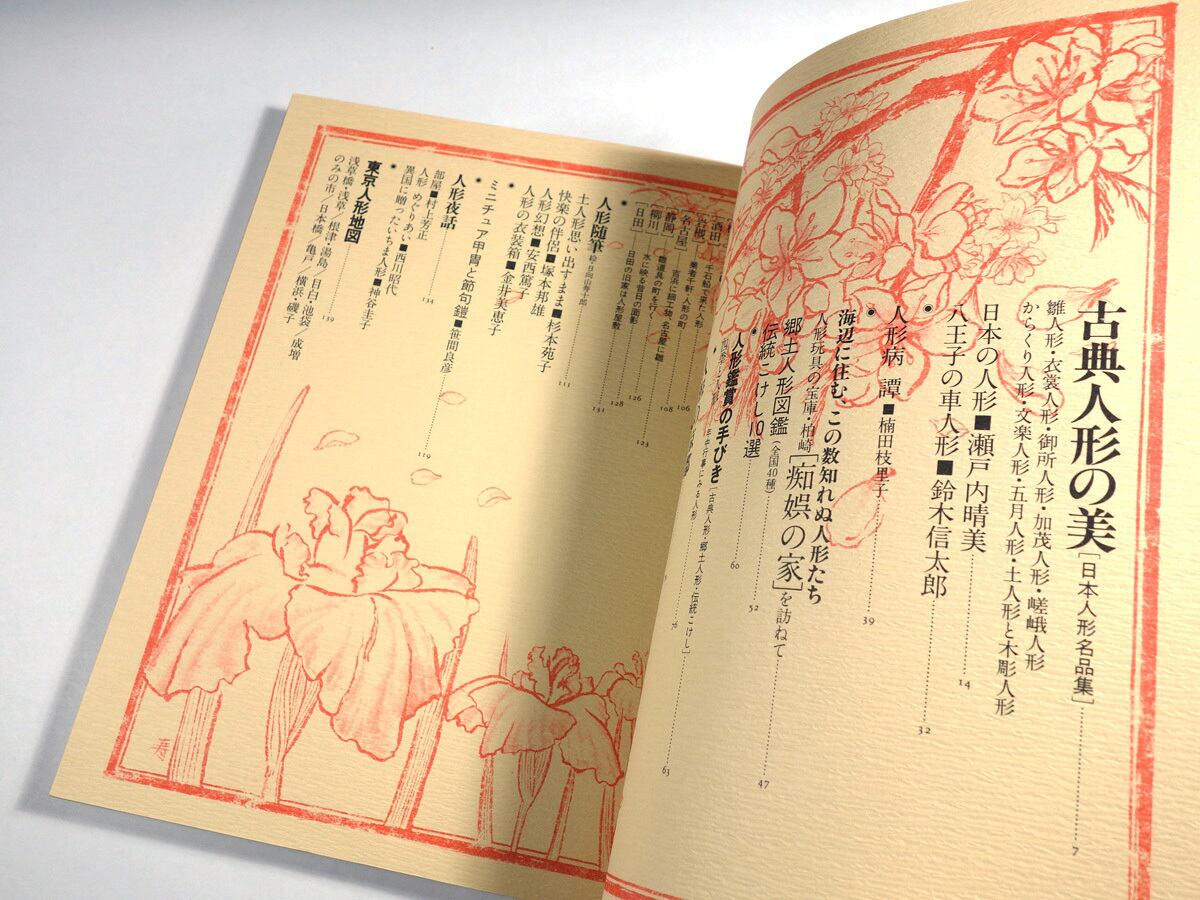 古典人形の美[日本人形名品集]……7
雛人形・衣裳人形・御所人形・加茂人形・嵯峨人形
からくり人形・文楽人形・五月人形・土人形と木彫人形
日本の人形■瀬戸内晴美……14
八王子の車人形■鈴木信太郎……32
人形病譚■楠田枝里子……39
海辺に住む、この数知れぬ人形たち
人形玩具の宝庫・柏崎[痴娯の家]を訪ねて……47
郷土人形図鑑(全国40種)……52
伝統こけし10選……60
人形鑑賞の手びき[古典人形・郷土人形・伝統こけし]……63
年中行事にみる人形……76
[酒田]
千石船で来た人形
[岩槻]
業者千軒・人形の町……106
[名古屋]
吉浜に細工物、名古屋に雛……108
[静岡]
雛道具の町を行く……123
[柳川]
水に映る昔日の面影……126
[日田]
日田の旧家は人形屋敷……128
人形随筆 絵・日向山寿十郎……131
土人形思い出すまま■杉本苑子……111
快楽の伴侶■塚本邦雄
人形幻想■安西篤子
人形の衣装箱■金井美恵子
ミニチュア甲冑と節句鎧■笹間良彦……119
人形夜話……134
部屋■村上芳正
人形 めぐりあい■西川昭代
異国に贈ったいちま人形■神谷圭子
東京人形地図……139
浅草橋・浅草/根津・湯島/目白・池袋 成増
のみの市/日本橋/亀戸 横浜・磯子
寿